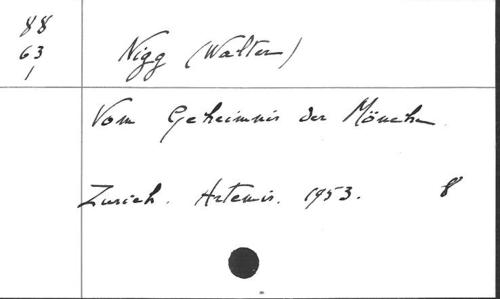 88
63
1
Nigg (Walter)
Vom Geheimnis der Mönche
Zurich. Artemis. 1953. 8